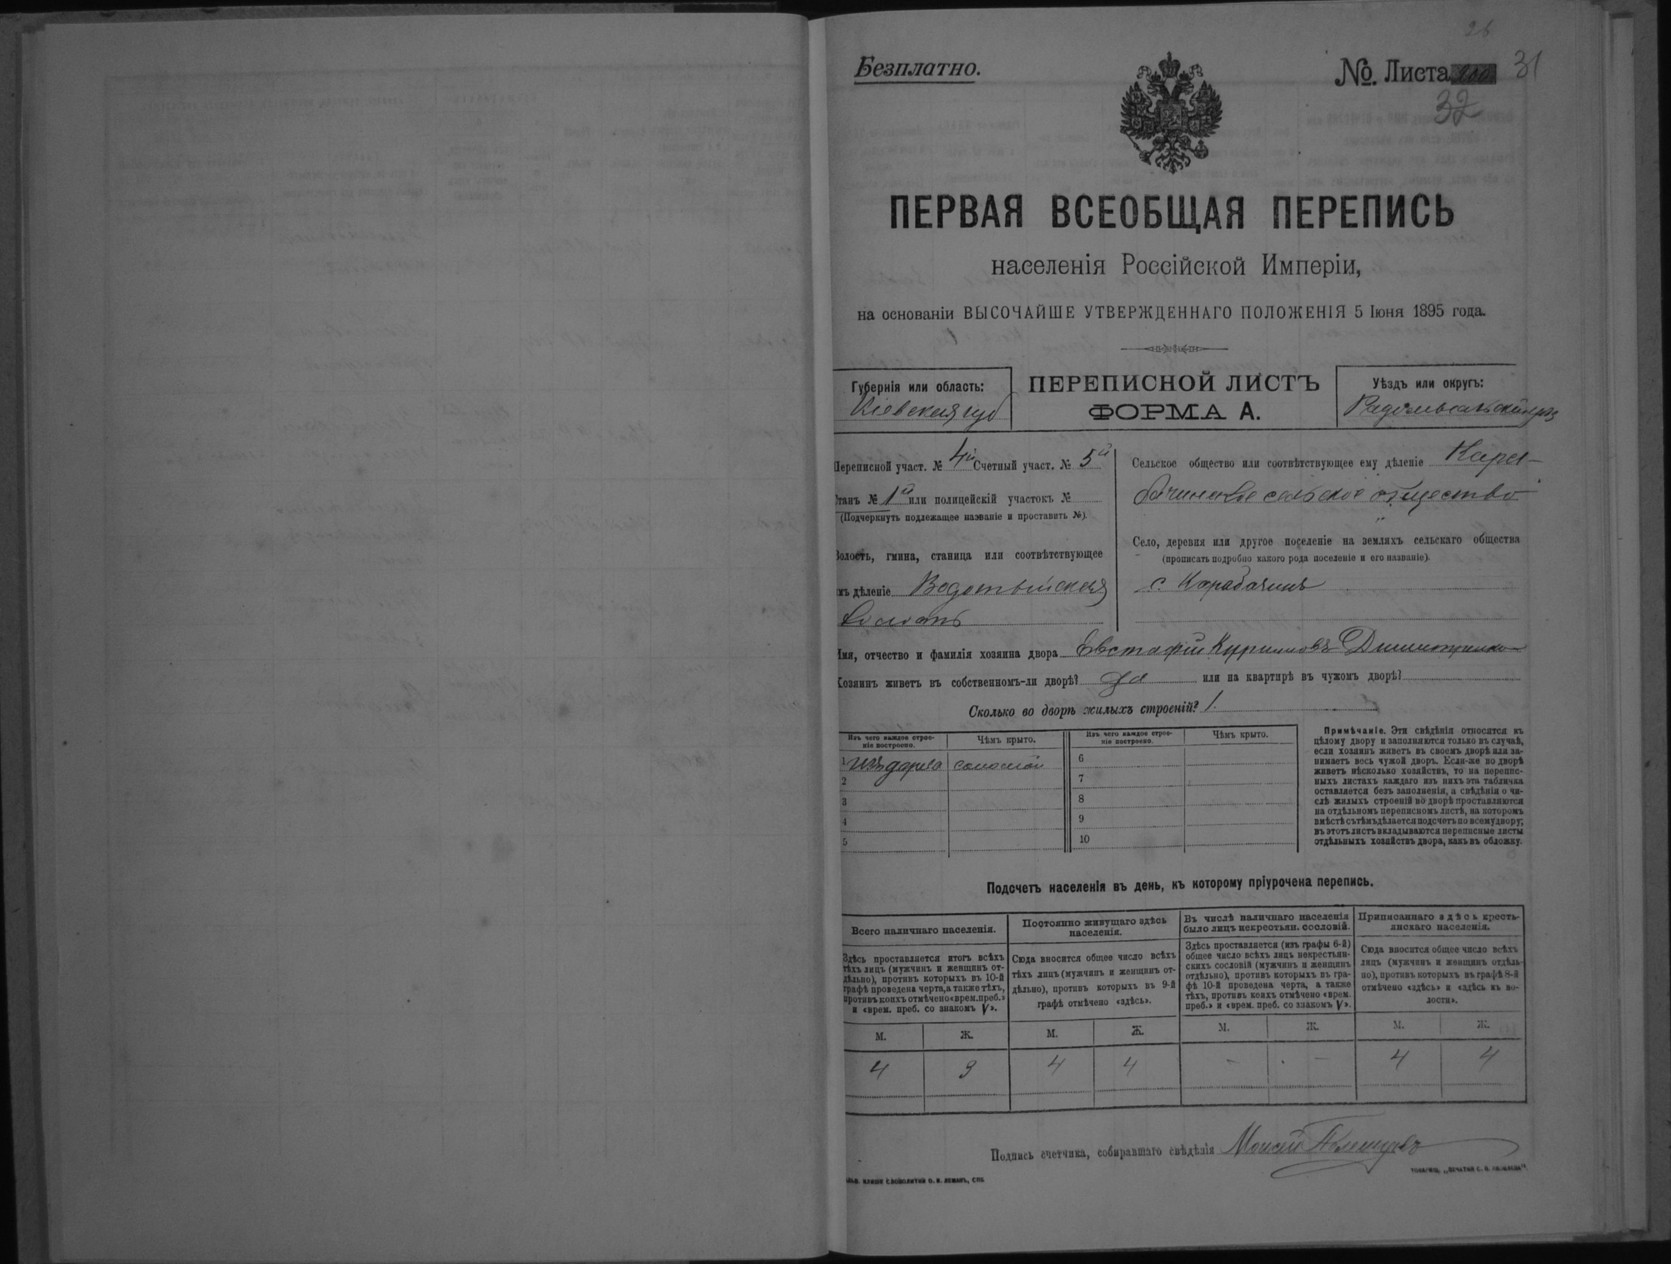 26
Безплатно.
№ Листа 31
32
ПЕРВАЯ ВСЕОБЩАЯ ПЕРЕПИСЬ
населенія Россійской Имперіи,
на основаніи ВЫСОЧАЙШЕ УТВЕРЖДЕННАГО ПОЛОЖЕНІЯ 5 Іюня 1895 года.
Губернія или область:
Кіевская губ
ПЕРЕПИСНОЙ ЛИСТЪ
ФОРМА А.
Уѣздъ или округъ:
Радомысльскій уѣз
Переписной участ. № 4й Счетный участ. № 5й
Станъ № 1й или полицейскій участокъ №
(Подчеркнуть подлежащее названіе и проставить №)
Волость, гмина, станица или соотвѣтствующее
имъ дѣленіе Водотыйская
волость
Сельское общество или соотвѣтствующее ему дѣленіе Кара-
бачинское сельское общество
Село, деревня или другое поселеніе на земляхъ сельскаго общества
(прописать подробно какого рода поселеніе и его названіе).
с. Карабачинъ
Имя, отчество и фамилія хозяина двора Евстафій Димитренко
Хозяинъ живетъ въ собственномъ-ли дворѣ? Да или на квартирѣ въ чужомъ дворѣ?
Сколько во дворѣ жилыхъ строеній? 1
Изъ чего каждое строе-
ніе построено.
Чѣмъ крыто.
Изъ чего каждое строе-
ніе построено.
Чѣмъ крыто.
1 изъ дерева соломой
2
3
4
5
6
7
8
9
10
Примѣчаніе. Эти свѣдѣнія относятся къ
цѣлому двору и заполняются только въ случаѣ,
если хозяинъ живетъ въ своемъ дворѣ или за-
нимаетъ весь чужой дворъ. Если-же во дворѣ
живетъ нѣсколько хозяйствъ, то на перепис-
ныхъ листахъ каждаго изъ нихъ эта табличка
оставляется безъ заполненія, а свѣдѣнія о чи-
слѣ жилыхъ строеній во дворѣ проставляются
на отдѣльномъ переписномъ листѣ, на которомъ
вмѣстѣ съ тѣмъ дѣлается подсчетъ по всему двору;
въ этотъ листъ вкладываются переписные листы
отдѣльныхъ хозяйствъ двора, какъ въ обложку.
Подсчетъ населенія въ день, къ которому пріурочена перепись.
Всего наличнаго населенія.
Здѣсь проставляется итогъ всѣхъ
тѣхъ лицъ (мужчинъ и женщинъ от-
дѣльно), противъ которыхъ въ 10-й
графѣ проведена черта, а также тѣхъ,
противъ коихъ отмѣчено «врем. преб.»
и «врем. преб. со знакомъ V».
Постоянно живущаго здѣсь
населенія.
Сюда вносится общее число всѣхъ
тѣхъ лицъ (мужчинъ и женщинъ от-
дѣльно), противъ которыхъ въ 9-й
графѣ отмѣчено «здѣсь».
Въ числѣ наличнаго населенія
было лицъ некрестьян. сословій.
Здѣсь проставляется (изъ графы 6-й)
общее число всѣхъ лицъ некрестьян-
скихъ сословій (мужчинъ и женщинъ
отдѣльно), противъ которыхъ въ гра-
фѣ 10-й проведена черта, а также
тѣхъ, противъ коихъ отмѣчено «врем.
преб.» и «врем. преб. со знакомъ V».
Приписаннаго здѣсь кресть-
янскаго населенія.
Сюда вносится общее число всѣхъ
лицъ (мужчинъ и женщинъ отдѣль-
но), противъ которыхъ въ графѣ 8-й
отмѣчено «здѣсь» и «здѣсь къ во-
лости».
М. Ж. М. Ж. М. Ж. М. Ж.
4 3 4 4 - - 4 4
Подпись счетчика, собиравшаго свѣдѣнія Моисей